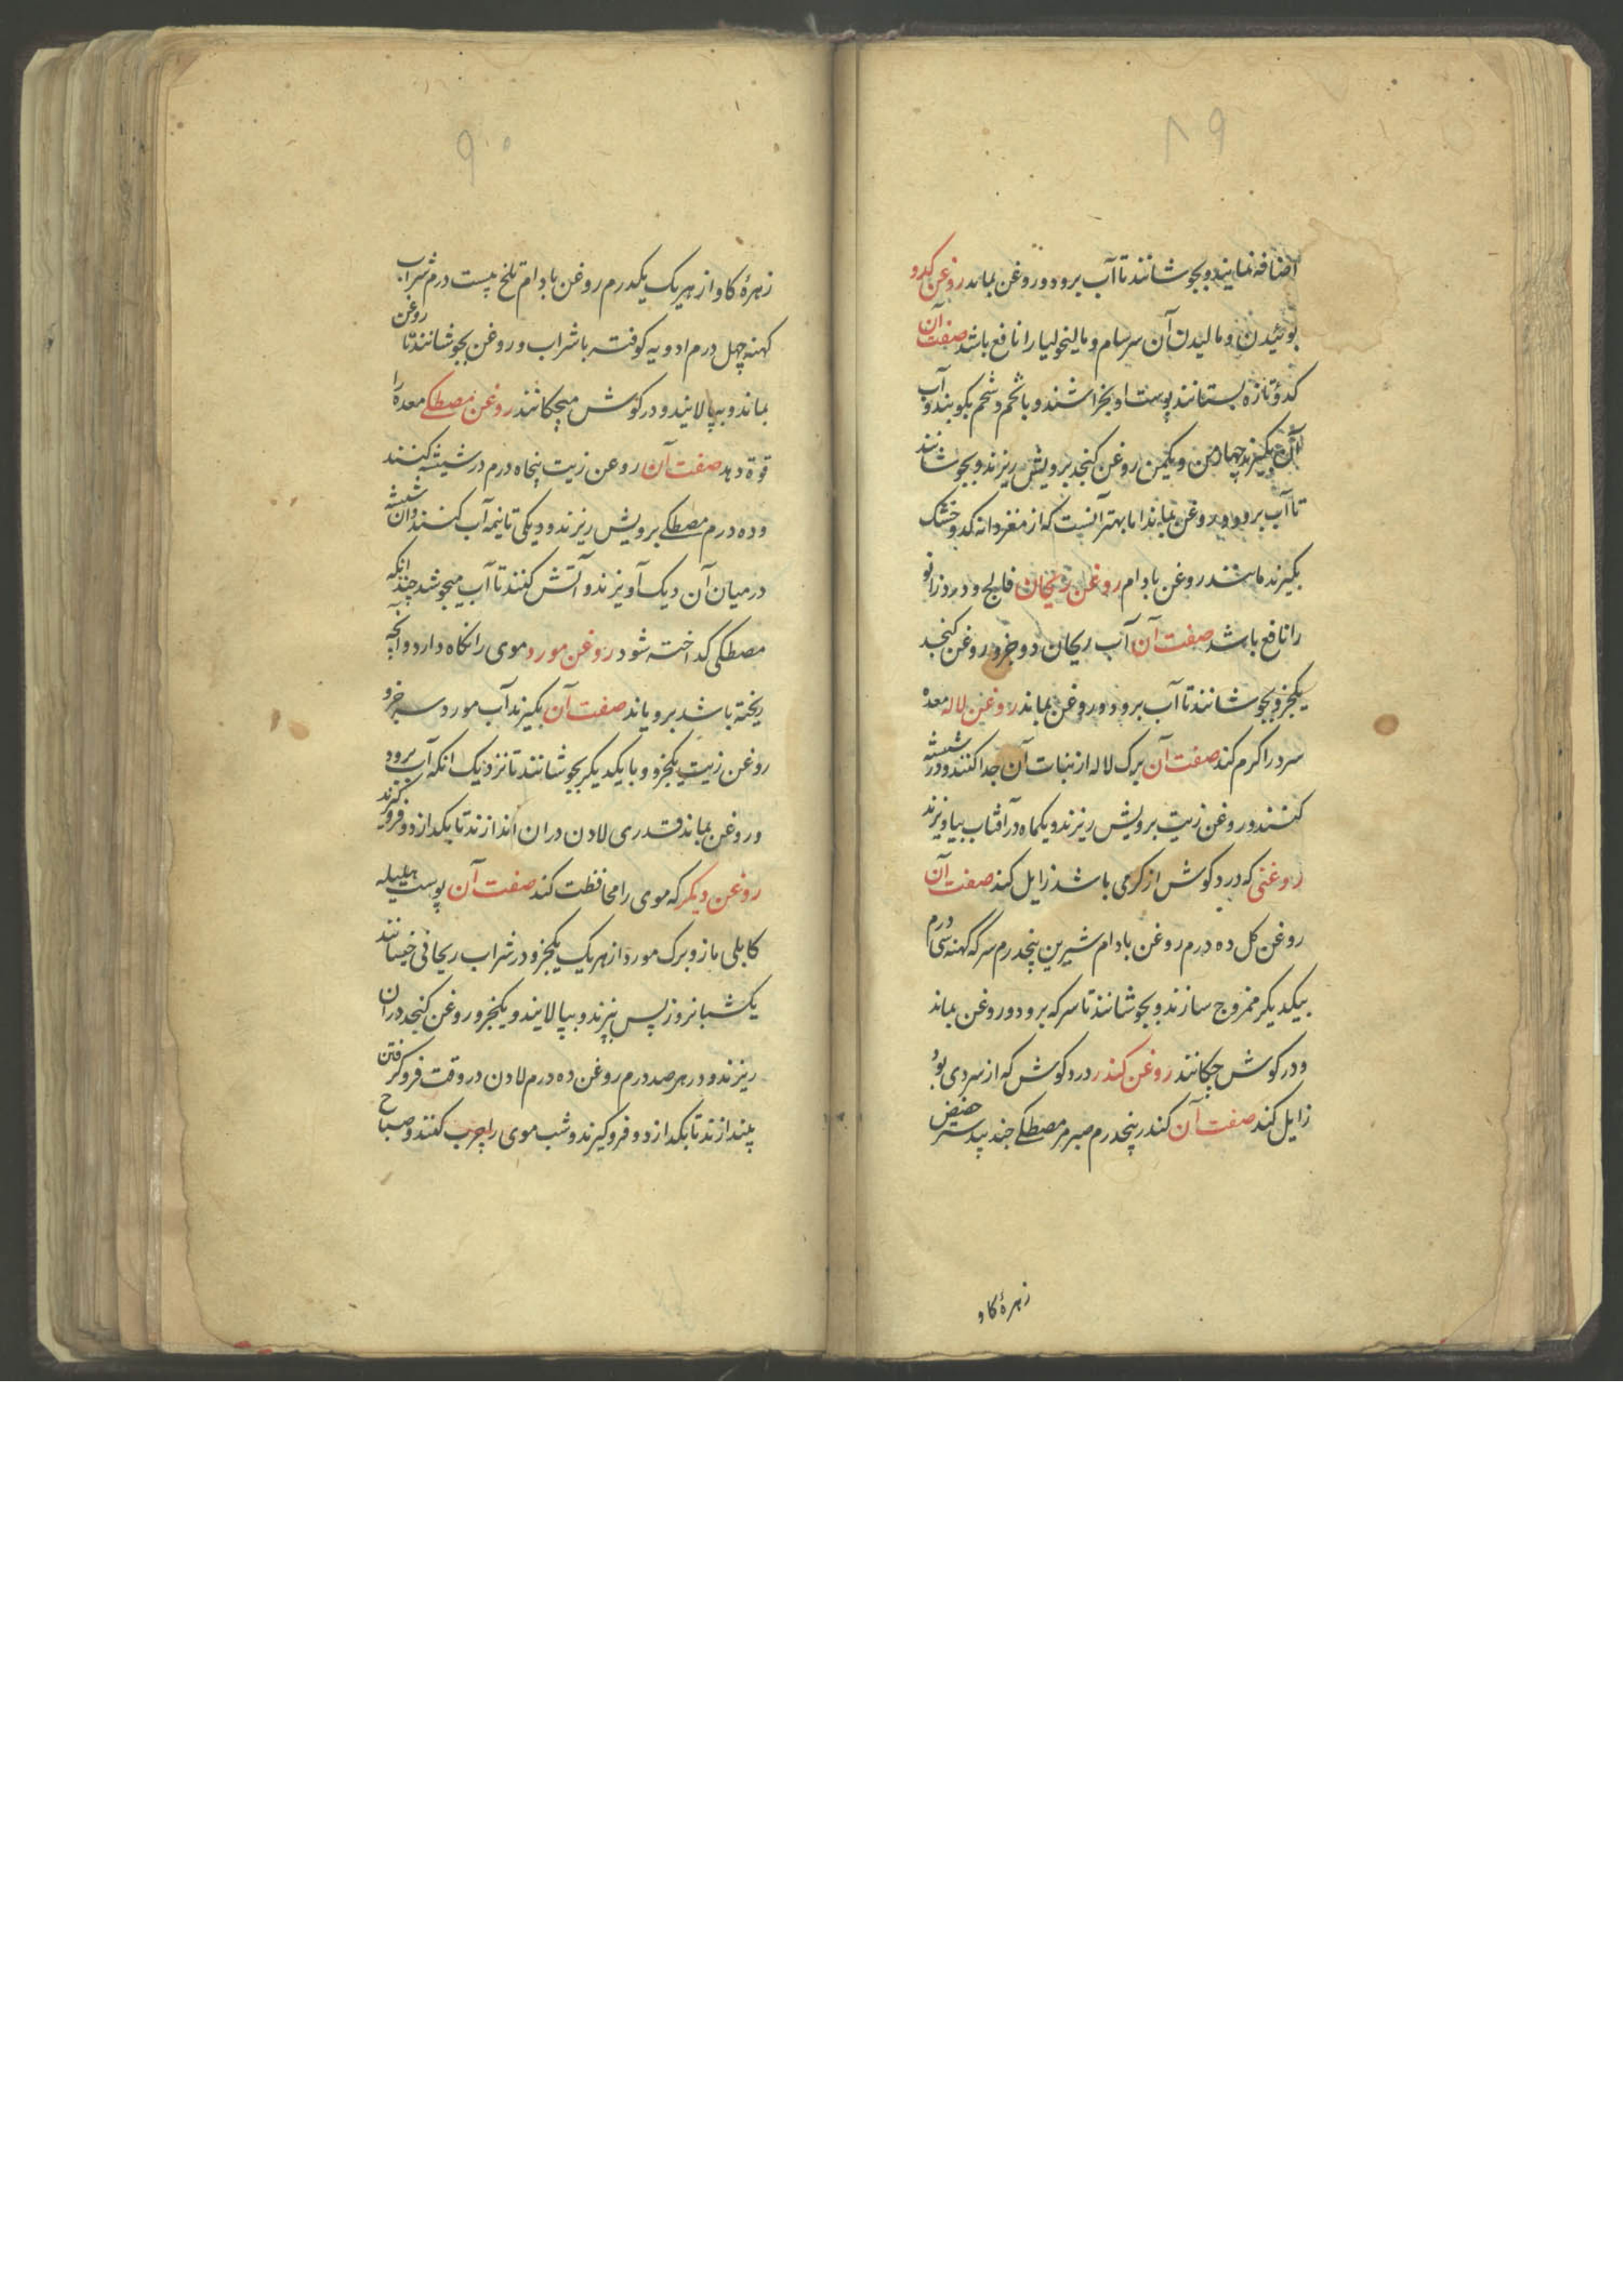 ۸۹
اضافه نمایند و بجوشانند تا آب برود و روغن بماند روغن کدو
بوئیدن و مالیدن آن سرسام و مالیخولیا را نافع باشد صفت آن
کدوی تازه بستانند پوست او بخراشند و با تخم و شحم بکوبند و آب
آن بگیرند چهار من و یکمن روغن کنجد برویش ریزند و بجوشانند
تا آب برود و روغن بماند اما بهتر آنست که از مغز دانه کدو خشک
بگیرند مانند روغن بادام روغن ریحان فالج و درد زانو
را نافع باشد صفت آن آب ریحان دو جزو روغن کنجد
یکجزو بجوشانند تا آب برود و روغن بماند روغن لاله معده
سرد را کرم کند صفت آن برک لاله از نبات آن جدا کنند و در شیشه
کنند و روغن زیت برویش ریزند و یکماه در آفتاب بیاویزند
روغنی که درد کوش از کرمی باشد زایل کند صفت آن
روغن کل ده درم روغن بادام شیرین پنجدرم سرکه کهنه سی درم
بیکدیکر ممزوج سازند و بجوشانند تا سرکه برود و روغن بماند
و در کوش چکانند روغن کندر درد کوش که از سردی بود
زایل کند صفت آن کندر پنجدرم صبر مر مصطکی جندبیدستر حضض
زهرۀ کاو
۹۰
زهرۀ کاو از هریک یکدرم روغن بادام تلخ بیست درم شراب
کهنه چهل درم ادویه کوفته با شراب و روغن بجوشانند تا روغن
بماند و بپالایند و در کوش میچکانند روغن مصطکی معده را
قوة دهد صفت آن روغن زیت پنجاه درم در شیشه کنند
و ده درم مصطکی برویش ریزند و دیکی تا نیمه آب کنند و آن شیشه
در میان آن دیک آویزند و آتش کنند تا آب میجوشد چندانکه
مصطکی کداخته شود روغن مورد موی را نکاه دارد و آنچه
ریخته باشد برویاند صفت آن بگیرند آب مورد سه جزو
روغن زیت یکجزو و با یکدیکر بجوشانند تا نزدیک انکه آب برود
و روغن بماند قدری لادن دران اندازند تا بکدازد و فروگیرند
روغن دیکر که موی را محافظت کند صفت آن پوست هلیله
کابلی مازو برک مورد از هریک یکجزو در شراب ریحانی خیسانند
یکشبانروز پس بپزند و بپالایند و یکجزو روغن کنجد دران
ریزند و در هر صد درم روغن ده درم لادن در وقت فروکرفتن
بیندازند تا بکدازد و فروکیرند و شب موی را چرب کنند و صباح